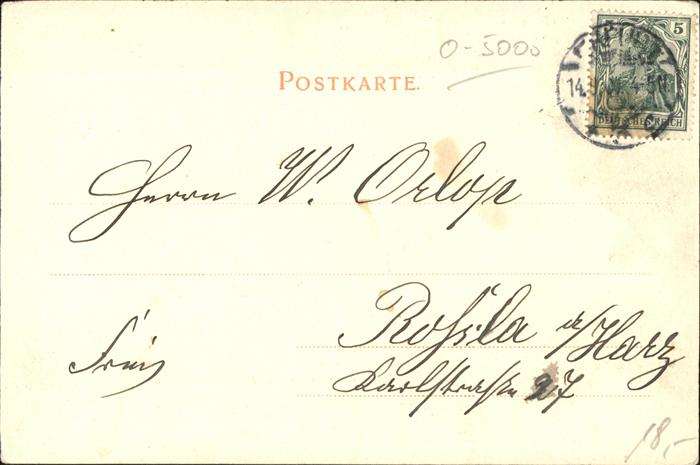 0-5000
5
POSTKARTE.
DEUTSCHES REICH
Herrn W. Orlop
Roßla a/Harz
Frei
Karlstraße 27
18,-